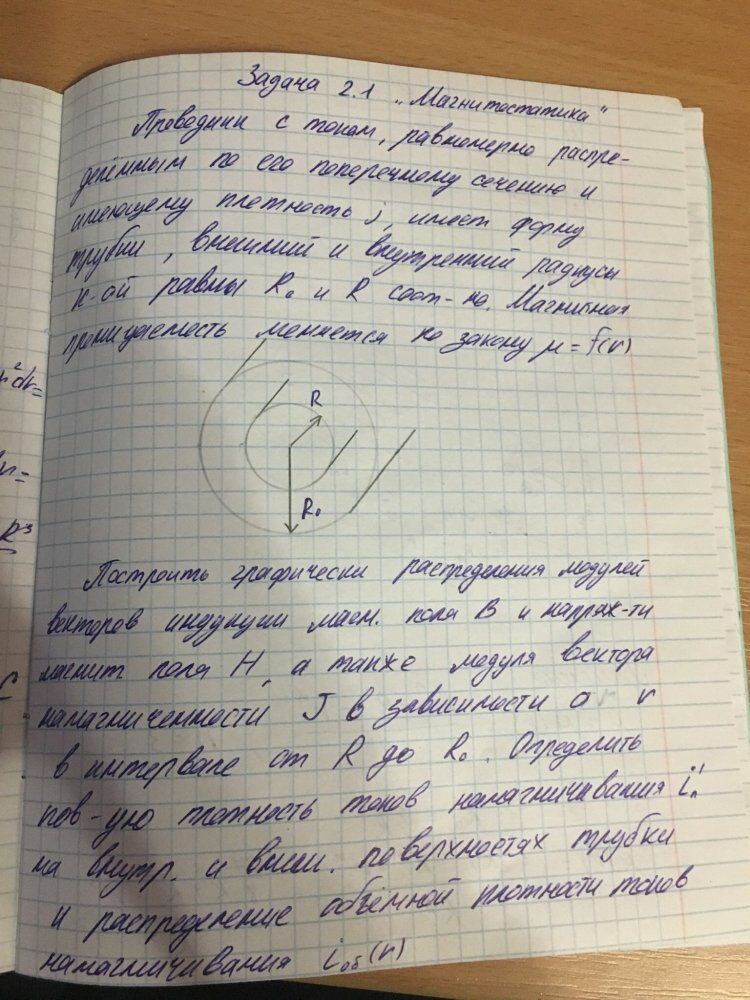 Задача 2.1 „Магнитостатика"
Проводник с током, равномерно распре-
делённым по его поперечному сечению и
имеющему плотность j, имеет форму
трубки, внешний и внутренний радиусы
к-ой равны R₀ и R соот-но. Магнитная
проницаемость меняется по закону μ = f(r)
R
R₀
Построить графически распределения модулей
векторов индукции магн. поля B и напряж-ти
магнит поля H, а также модуля вектора
намагниченности J в зависимости о r
в интервале от R до R₀. Определить
пов-ую плотность токов намагничивания i'ₙ
на внутр. и внеш. поверхностях трубки
и распределение объёмной плотности токов
намагничивания i об (r)
r²dr=
R³